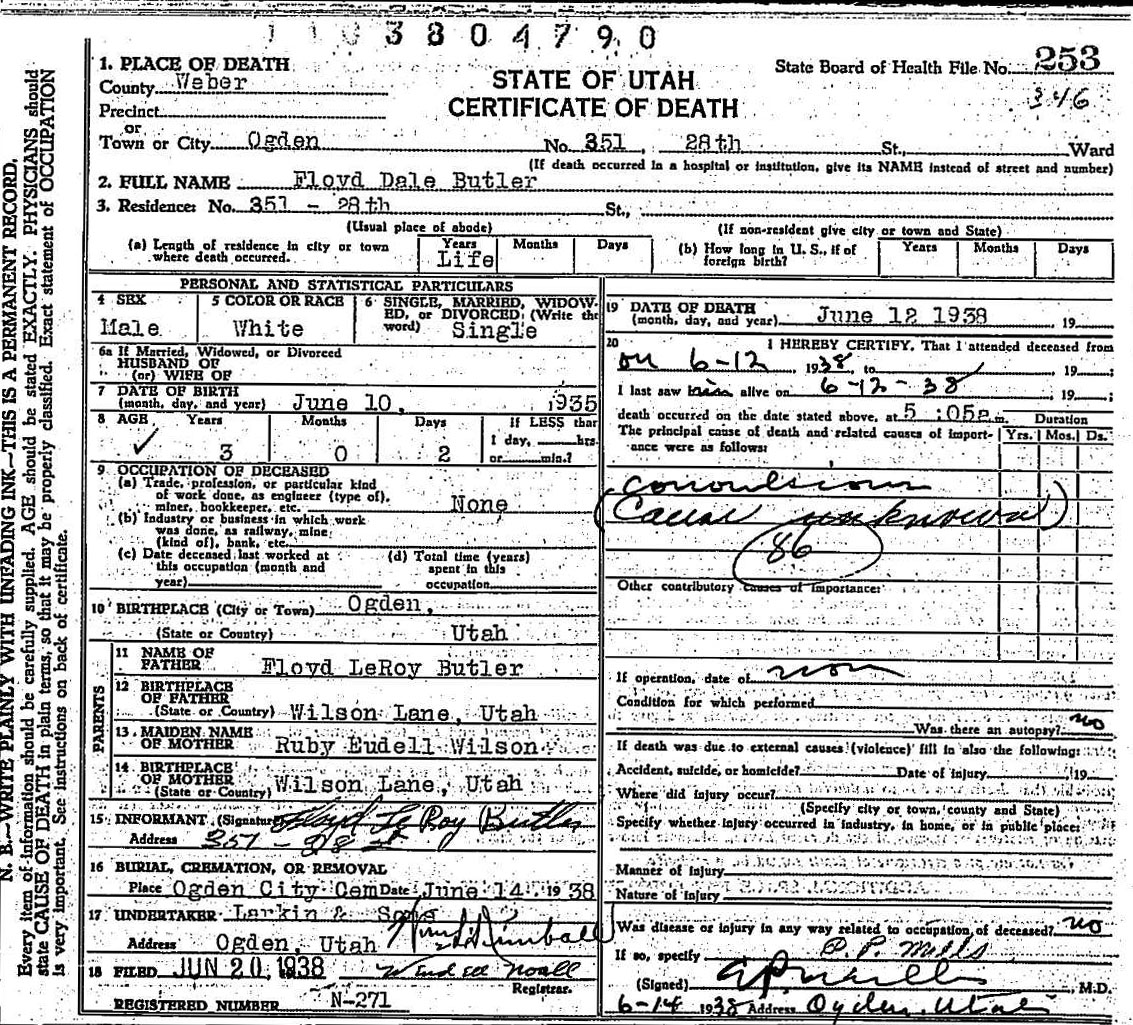 1 1 0 3 8 0 4 7 9 0
STATE OF UTAH
CERTIFICATE OF DEATH
State Board of Health File No. 253
346
1. PLACE OF DEATH
County Weber
Precinct
or
Town or City Ogden No. 351, 28th St., Ward
(If death occurred in a hospital or institution, give its NAME instead of street and number)
2. FULL NAME Floyd Dale Butler
3. Residence: No. 351 - 28th St.,
(Usual place of abode) (If non-resident give city or town and State)
(a) Length of residence in city or town where death occurred. Years Months Days
Life
(b) How long in U. S., if of foreign birth? Years Months Days
PERSONAL AND STATISTICAL PARTICULARS
4 SEX
Male
5 COLOR OR RACE
White
6 SINGLE, MARRIED, WIDOW-
ED, or DIVORCED: (Write the
word) Single
6a If Married, Widowed, or Divorced
HUSBAND OF
(or) WIFE OF
7 DATE OF BIRTH
(month, day, and year) June 10, 1935
8 AGE Years Months Days If LESS than
1 day, hrs.
or min.?
✓ 3 0 2
9 OCCUPATION OF DECEASED
(a) Trade, profession, or particular kind
of work done, as engineer (type of),
miner, bookkeeper, etc. None
(b) Industry or business in which work
was done, as railway, mine
(kind of), bank, etc.
(c) Date deceased last worked at
this occupation (month and
year)
(d) Total time (years)
spent in this
occupation
10 BIRTHPLACE (City or Town) Ogden,
(State or Country) Utah
PARENTS
11 NAME OF
FATHER Floyd LeRoy Butler
12 BIRTHPLACE
OF FATHER
(State or Country) Wilson Lane, Utah
13 MAIDEN NAME
OF MOTHER Ruby Eudell Wilson
14 BIRTHPLACE
OF MOTHER
(State or Country) Wilson Lane, Utah
15 INFORMANT (Signature) Floyd Le Roy Butler
Address 351 - 28 st
16 BURIAL, CREMATION, OR REMOVAL
Place Ogden City Cem Date June 14 1938
17 UNDERTAKER Larkin & Sons
Address Ogden, Utah
18 FILED JUN 20, 1938 Wendell Noall
Registrar.
REGISTERED NUMBER N-271
19 DATE OF DEATH
(month, day, and year) June 12 1938, 19
20 I HEREBY CERTIFY, That I attended deceased from
on 6-12, 1938, to , 19 ;
I last saw him alive on 6-12-38, 19 ;
death occurred on the date stated above, at 5:05 m. Duration
The principal cause of death and related causes of import-
ance were as follows: Yrs. Mos. Ds.
convulsions
(Cause unknown)
86
Other contributory causes of importance:
If operation, date of non
Condition for which performed
Was there an autopsy? no
If death was due to external causes (violence) fill in also the following:
Accident, suicide, or homicide? Date of injury 19
Where did injury occur?
(Specify city or town, county and State)
Specify whether injury occurred in industry, in home, or in public place:
Manner of Injury
Nature of Injury
Was disease or injury in any way related to occupation of deceased? no
If so, specify P. P. Mills
(Signed) M.D.
6-14 1938 Address Ogden, Utah
N. B.—WRITE PLAINLY WITH UNFADING INK—THIS IS A PERMANENT RECORD.
Every item of information should be carefully supplied. AGE should be stated EXACTLY. PHYSICIANS should
state CAUSE OF DEATH in plain terms, so that it may be properly classified. Exact statement of OCCUPATION
is very important. See instructions on back of certificate.